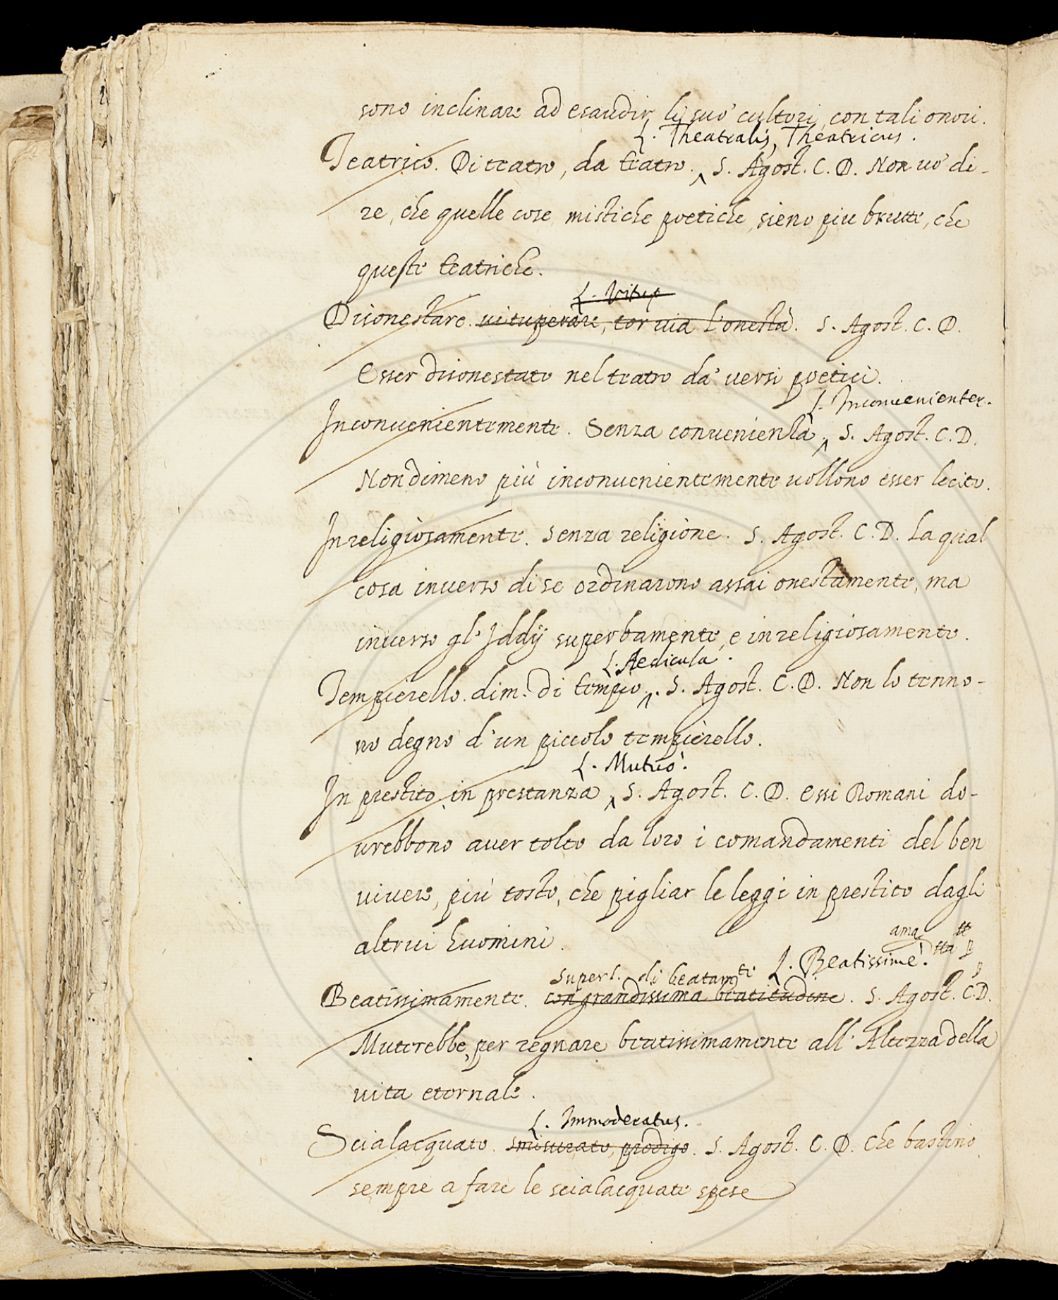 sono inclinare ad esaudir li suo' cultori con tali onori.
L. Theatralis, Theatricus.
Teatrico. Di teatro, da teatro. S. Agost. C. D. Non vo' di-
re, che quelle cose mistiche poetiche, sieno piu brutte, che
queste teatriche.
L. Vitup
Disonestare. vituperare, tor via l'onestà. S. Agost. C. D.
Esser disonestato nel teatro da' versi poetici.
L. Inconvenienter.
Inconvenientemente. Senza convenienza, S. Agost. C. D.
Nondimeno più inconvenientemente vollono esser lecito.
Inreligiosamente. Senza religione. S. Agost. C. D. La qual
cosa inverso di se ordinarono assai onestamente, ma
inverso gl' Iddij superbamente, e inreligiosamente.
L. Aedicula.
Tempierello. dim. di tempio. S. Agost. C. D. Non lo tenno-
no degno d'un piccolo tempierello.
L. Mutuò.
In prestito, in prestanza, S. Agost. C. D. Essi Romani do-
vrebbono aver tolto da loro i comandamenti del ben
vivere, più tosto, che pigliar le leggi in prestito dagli
altrui huomini.
superl. di beatamte L. Beatissimè.
Beatissimamente. con grandissima beatitudine. S. Agost. C. D.
Muterebbe, per regnare beatissimamente all' Altezza della
vita eternale.
L. Immoderatus.
Scialacquato. smisurato, prodigo. S. Agost. C. D. Che bastino
sempre a fare le scialacquate spese